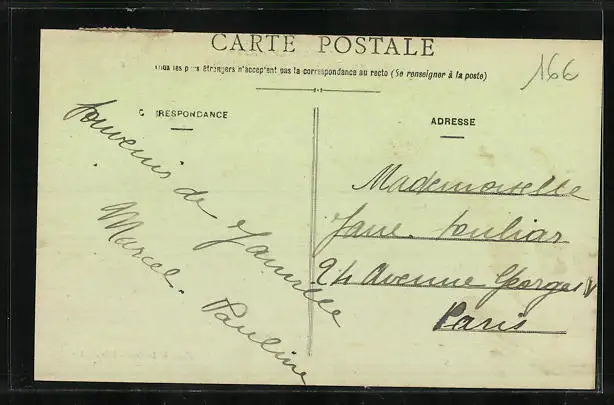 CARTE POSTALE
Tous les pays étrangers n'acceptent pas la correspondance au recto (Se renseigner à la poste)
166
C RRESPONDANCE
Souvenis de famille
Marcel. Pauline
ADRESSE
Mademoiselle
Jane. Souliar
24 Avenue Georges V
Paris